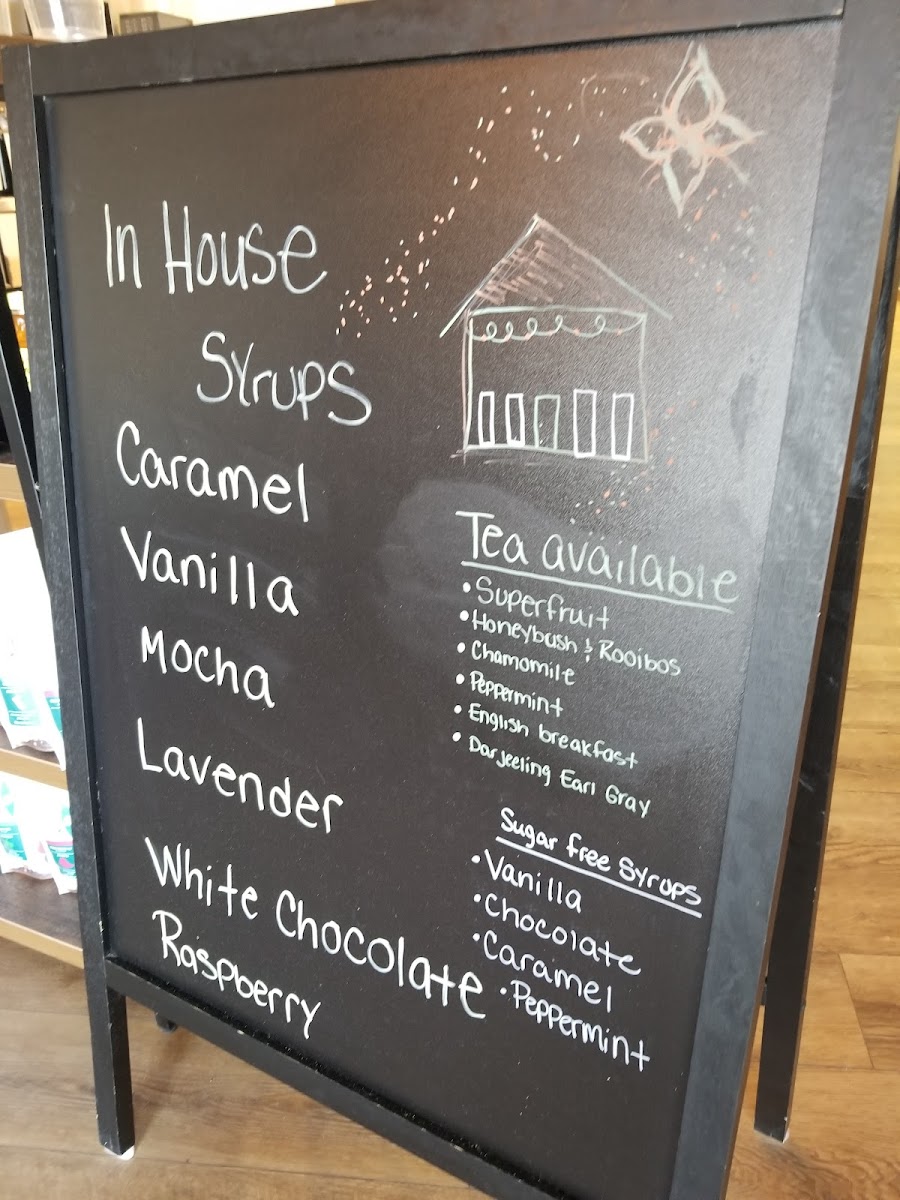 In House
Syrups
Caramel
Vanilla
Mocha
Lavender
White Chocolate
Raspberry
Tea available
• Superfruit
• Honeybush & Rooibos
• Chamomile
• Peppermint
• English breakfast
• Darjeeling Earl Gray
Sugar free Syrups
• Vanilla
• Chocolate
• Caramel
• Peppermint